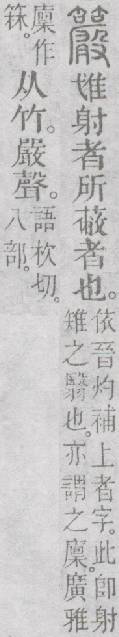 惟射者所蔽者也。
依晉灼補上者字。此卽射
雉之翳也。亦謂之廩。廣雅
廩作
从竹。嚴聲。
語杴切。
八部。